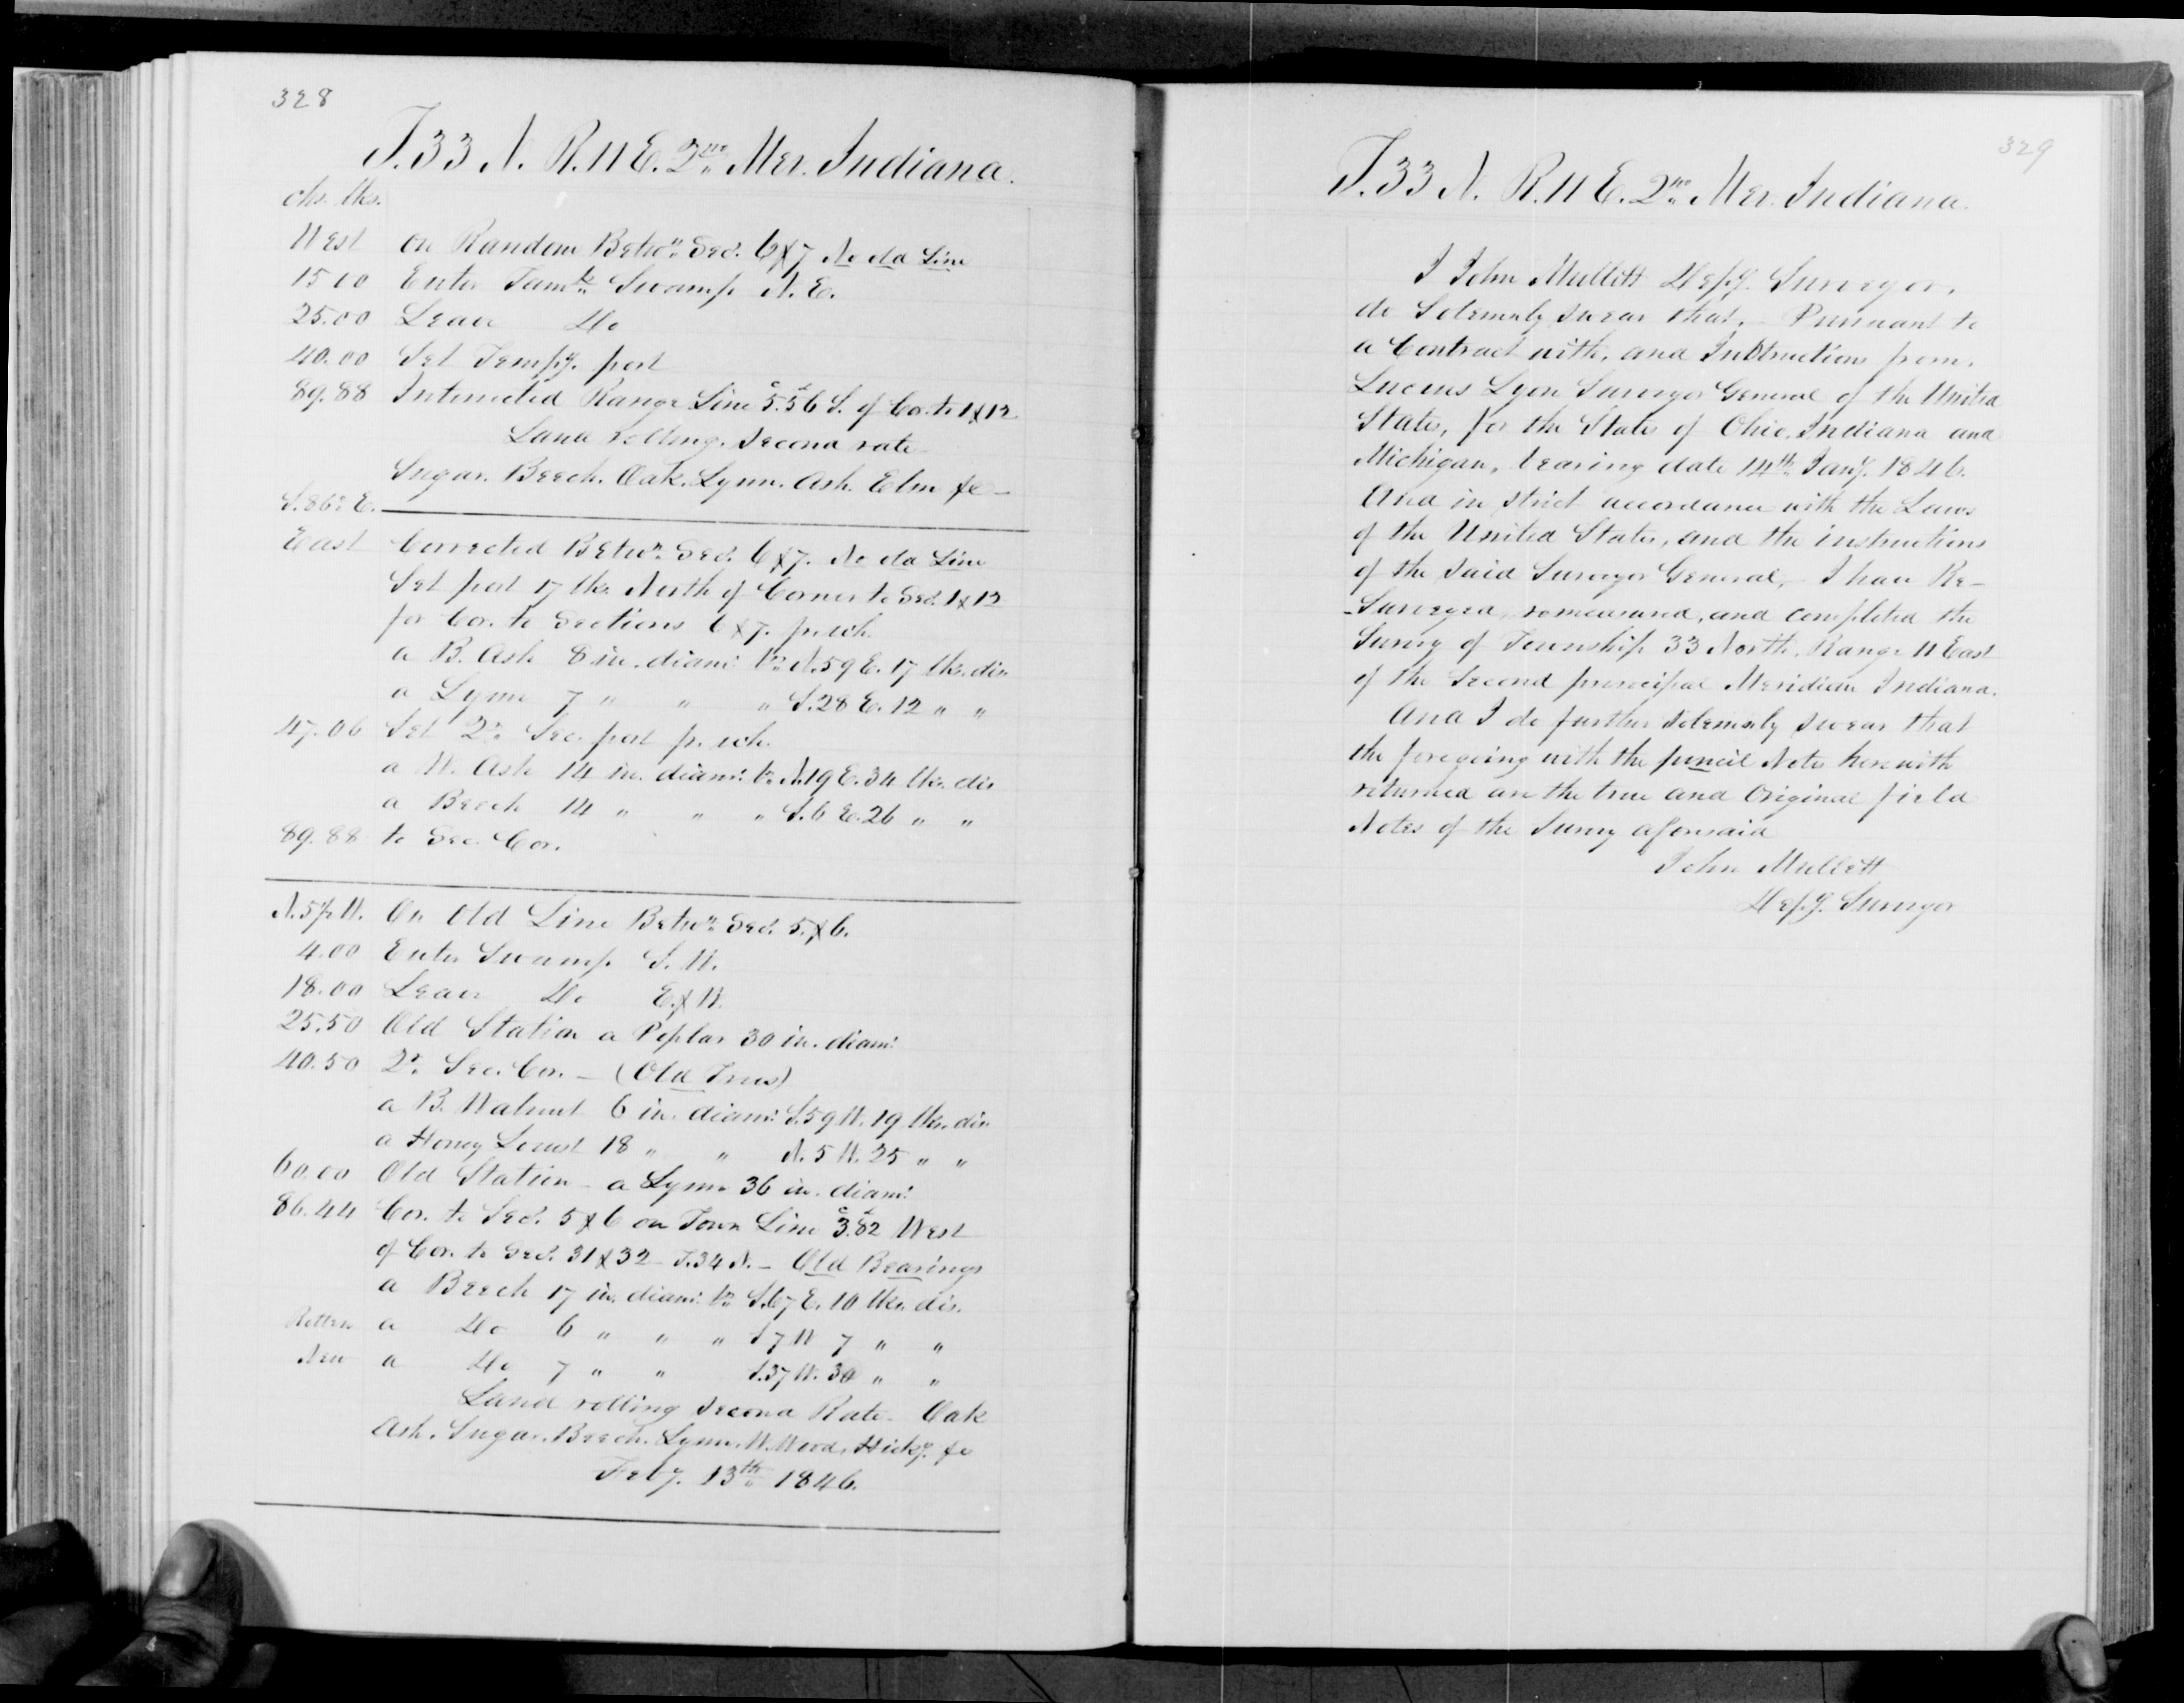 328
T. 33 N. R. 11 E. 2nd Mer. Indiana.
chs. lks.
West on Random Betwn. Secs. 6 & 7 No old Line
15 00 Enter Tamk. Swamp N. E.
25.00 Leave Do
40.00 Set Tempy. post
89.88 Intersected Range Line 5.56 S. of Cor. to 1 & 12
Land rolling. Second rate
Sugar. Beech. Oak. Lynn. Ash. Elm &c –
S. 86° E.
East Corrected Betwn. Secs. 6 & 7. No old Line
Set post 17 lks. North of Corner to Secs. 1 & 12
for Cor. to Sections 6 & 7. pr. wh.
a B. Ash 8 in. diam: br. N. 59 E. 17 lks. dis
a Lynn 7 " " " S. 28 E. 12 " "
47.06 Set Qr. Sec. post pr. wh.
a W. Ash 14 in. diam: br. N. 19 E. 34 lks. dis
a Beech 14 " " " S. 6 E. 26 " "
89.88 to Sec. Cor.
N. 5½ W. On Old Line Betwn. Secs. 5. & 6.
4.00 Enter Swamp S. W.
18.00 Leave Do E. & W.
25.50 Old Station a Poplar 30 in. diam:
40.50 Qr. Sec. Cor. – (Old Trees)
a B. Walnut 6 in. diam: S. 59 W. 19 lks. dis.
a Honey Locust 18 " " N. 5 W. 25 " "
60.00 Old Station – a Lynn 36 in. diam:
86.44 Cor. to Secs. 5 & 6 on Town Line 3.82 West
of Cor. to Secs. 31 & 32 T. 34 N. – Old Bearings
a Beech 17 in. diam: br. S. 67 E. 10 lks. dis.
Rotten a Do 6 " " " S 7 W 7 " "
New a Do 7 " " S. 37 W. 30 " "
Land rolling Second Rate – Oak
Ash. Sugar. Beech. Lynn. W. Wood, Hicky. &c
Feby. 13th 1846.
329
T. 33 N. R. 11 E. 2nd Mer. Indiana.
I John Mullett Depy. Surveyor,
do Solemnly swear that, – Pursuant to
a Contract with, and Instructions from,
Lucius Lyon Surveyor General of the United
States, for the States of Ohio, Indiana and
Michigan, bearing date 14th Jany. 1846.
And in strict accordance with the Laws
of the United States, and the instructions
of the said Surveyor General, – I have Re–
–Surveyed, remeasured, and completed the
Survey of Township 33 North, Range 11 East
of the Second principal Meridian Indiana.
And I do further solemnly swear that
the foregoing with the pencil Notes herewith
returned are the true and Original field
Notes of the Survey aforesaid
John Mullett
Depy. Surveyor